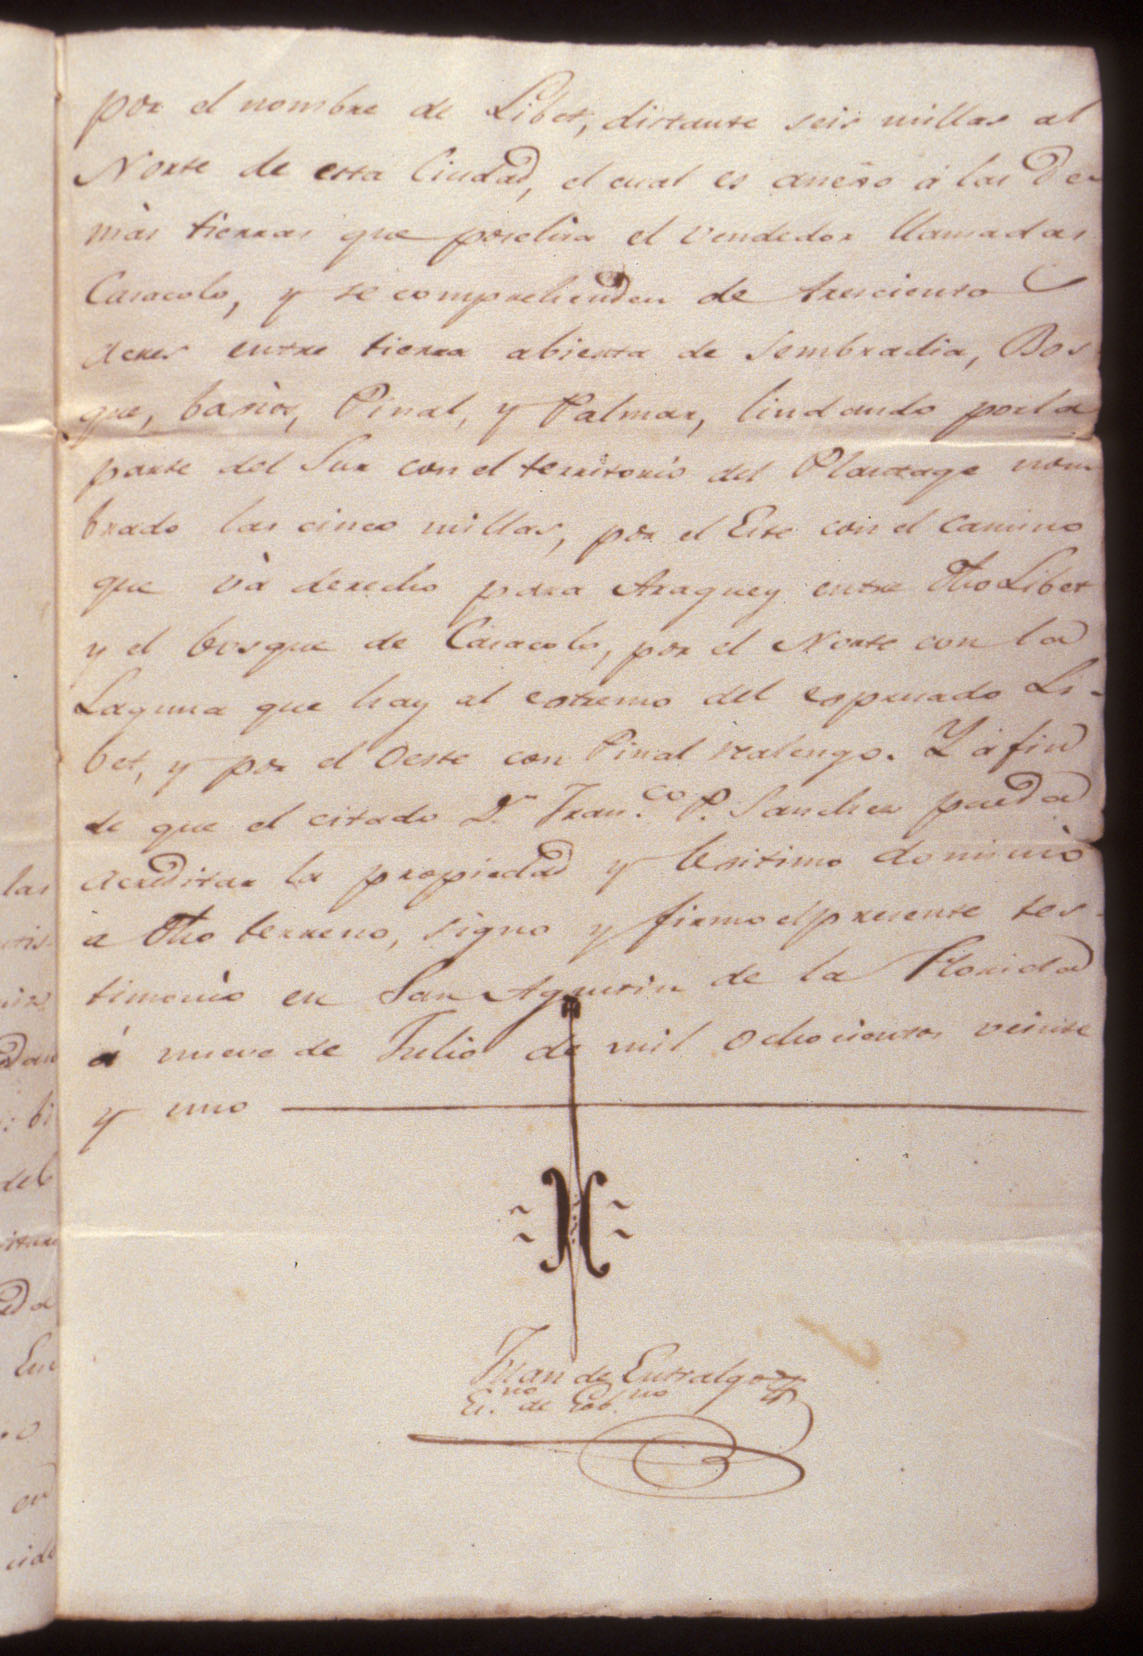 por el nombre de Libet, distante seis millas al
Norte de esta Ciudad, el cual es anexo á las de-
màs tierras que posehia el vendedor llamadas
Casacola, y se comprehenden de trescientos
acres entre tierra abierta de sembradia, Bos
que, baxios, Pinal, y Palmar, lindando por la
parte del Sur con el territorio del Plantage nom
brado las cinco millas, por el Este con el camino
que và derecho para Araguey entre dho Libet
y el bosque de Casacola, por el Norte con la
Laguna que hay al estremo del espresado Li-
bet, y por el Oeste con Pinal realengo. Y à fin
de que el citado Dn Franco. P. Sanchez pueda
acreditar la propiedad y lexitimo dominio
a dho terreno, signo y firmo el presente tes-
timonio en San Agustin de la Florida
á nueve de Julio de mil ochocientos veinte
y uno
Juan de Entralgo
Eno. de Gobno
las
dan
bi
deb
da
En
.o
en
cido